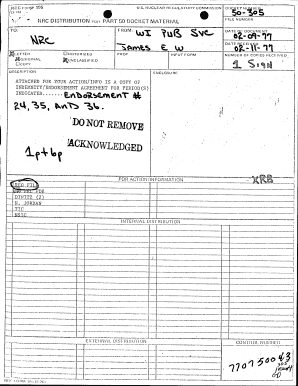 U.S. NUCLEAR REGULATORY COMMISSION
DOCKET NUMBER
50-305
NRC DISTRIBUTION FOR PART 50 DOCKET MATERIAL
FILE NUMBER
TO:
NRC
FROM:
WI PUB Svc
James E W
DATE OF DOCUMENT
02-09-77
DATE RECEIVED
02-11-77
LETTER
ORIGINAL
COPY
NOTORIZED
UNCLASSIFIED
PROP
INPUT FORM
NUMBER OF COPIES RECEIVED
1 Sign
DESCRIPTION
ENCLOSURE
ATTACHED FOR YOUR ACTION/INFO IS A COPY OF
INDEMNITY/ENDORSEMENT AGREEMENT FOR PERIOD(S)
INDICATED....... Endorsement #
24, 35, AND 36.
DO NOT REMOVE
ACKNOWLEDGED
1p+6p
FOR ACTION/INFORMATION
XRB
REG FILE
DINITZ (2)
TIC
NSIC
INTERNAL DISTRIBUTION
EXTERNAL DISTRIBUTION
CONTROL NUMBER